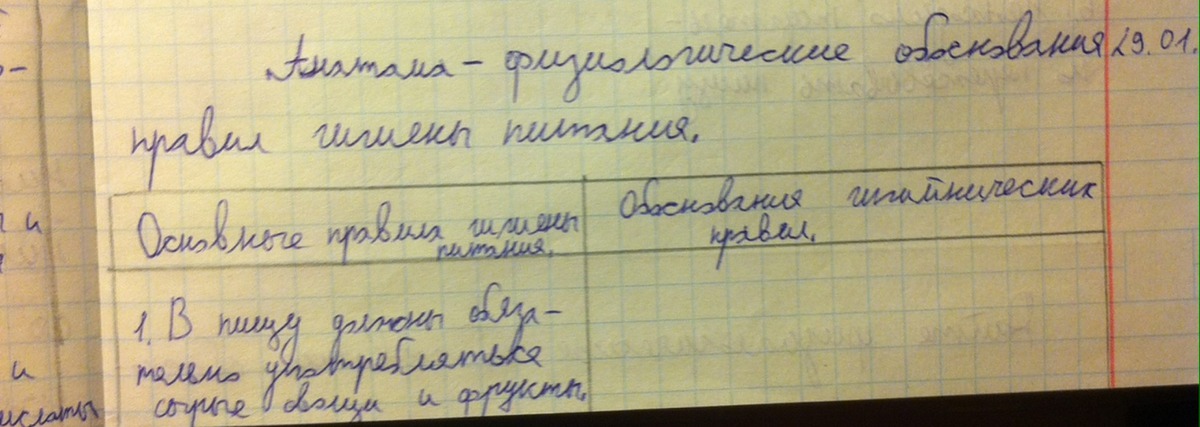 Анатома - физиологические обоснования 29.01.
правил гигиены питания.
Основные правила гигиены
питания.
Обоснования гигиенических
правил.
1. В пищу должны обяза-
тельно употребляться
сырые овощи и фрукты.
и
и
кислоты